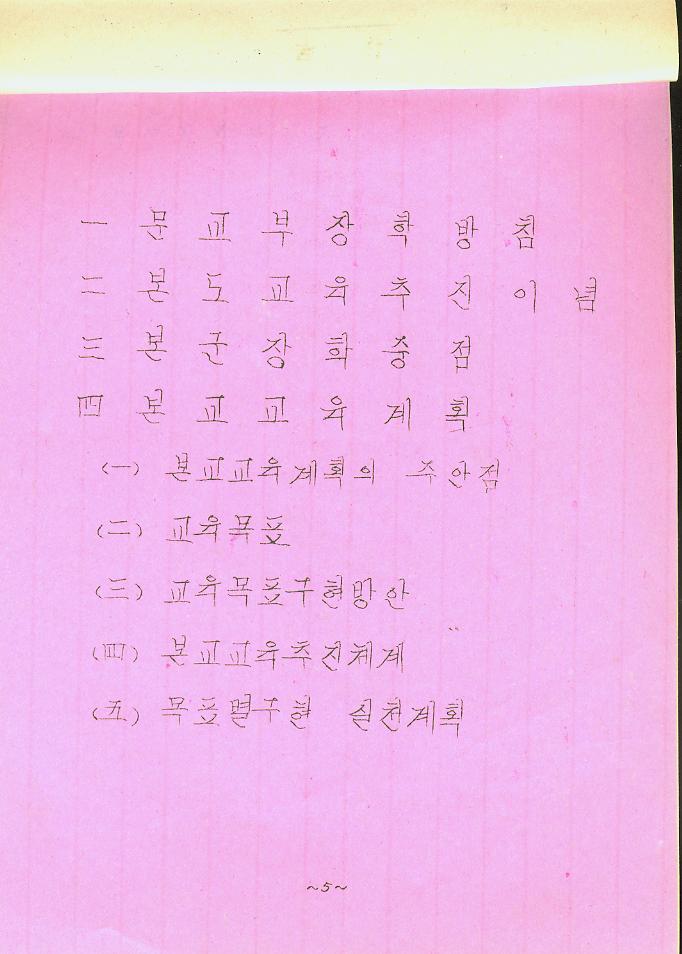 一 문교부장학방침
二 본도교육추진이념
三 본군장학중점
四 본교교육계획
(一) 본교교육계획의 주안점
(二) 교육목표
(三) 교육목표구현방안
(四) 본교교육추진체계
(五) 목표별구현 실천계획
~5~